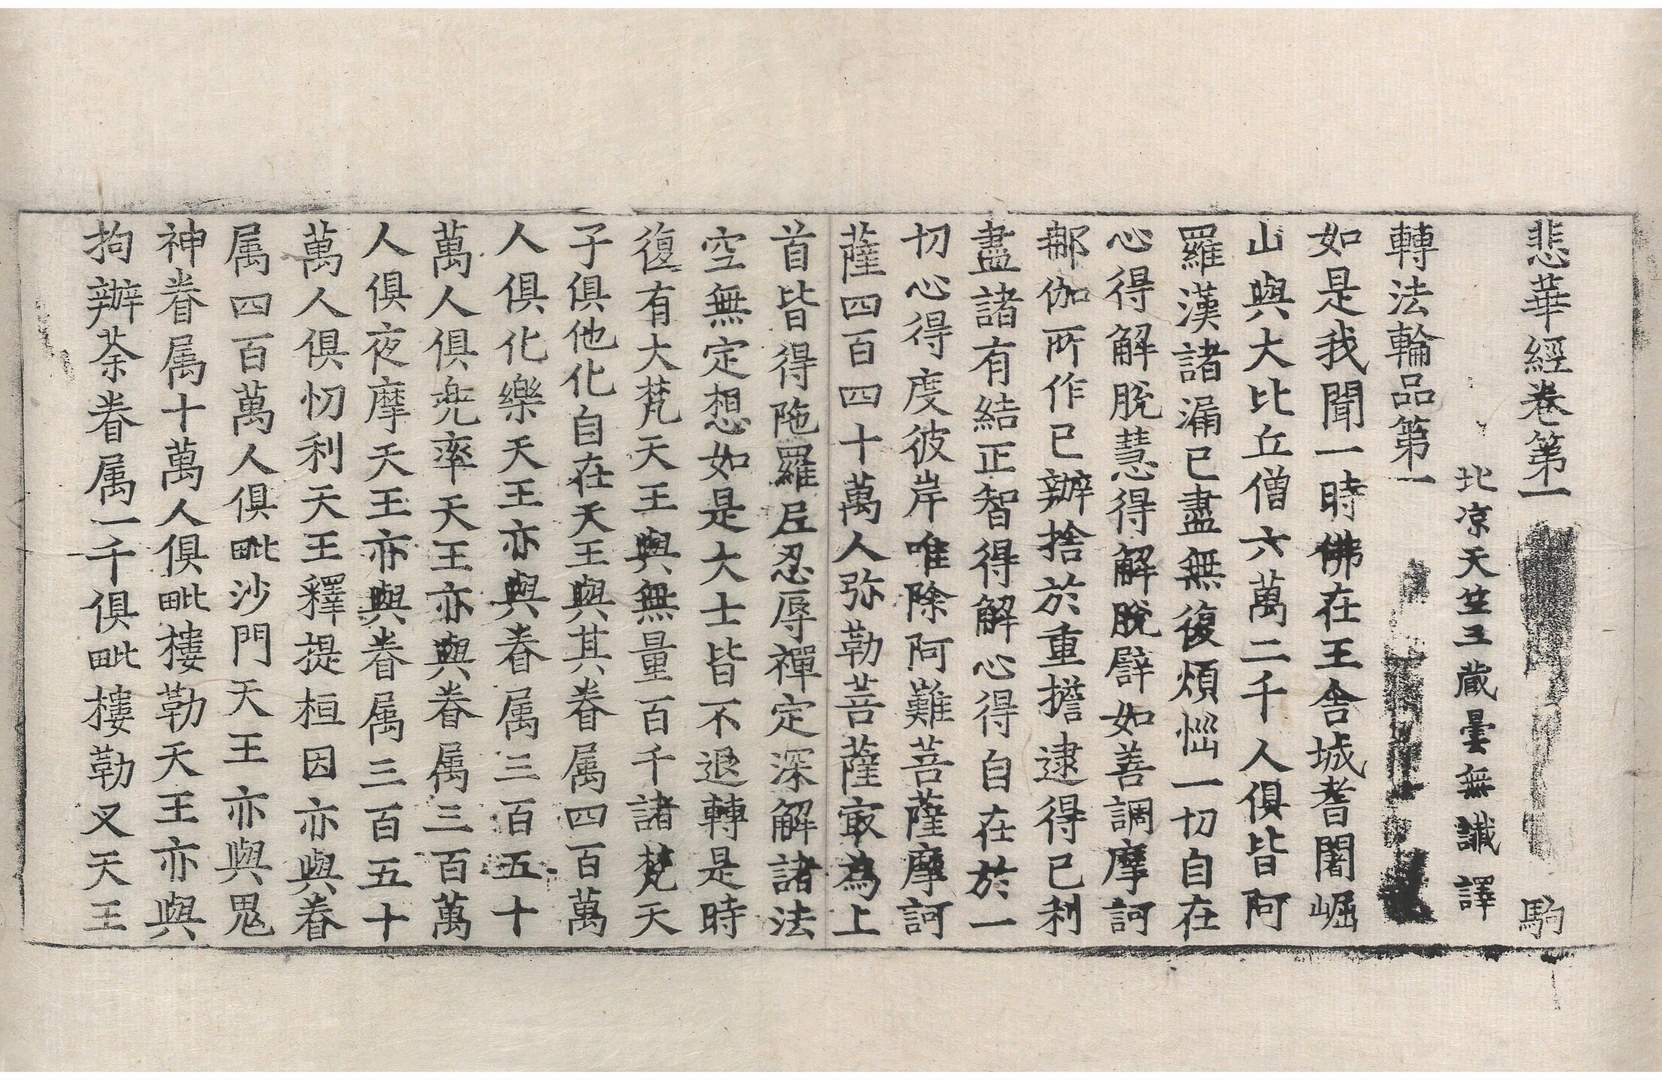 悲華經卷第一 駒
北涼天竺三藏曇無讖譯
轉法輪品第一
如是我聞一時佛在王舍城耆闍崛
山與大比丘僧六萬二千人俱皆阿
羅漢諸漏已盡無復煩惱一切自在
心得解脫慧得解脫譬如善調摩訶
那伽所作已辦捨於重擔逮得己利
盡諸有結正智得解心得自在於一
切心得度彼岸唯除阿難菩薩摩訶
薩四百四十萬人弥勒菩薩寂為上
首皆得陁羅尼忍辱禪定深解諸法
空無定想如是大士皆不退轉是時
復有大梵天王與無量百千諸梵天
子俱他化自在天王與其眷属四百萬
人俱化樂天王亦與眷属三百五十
萬人俱兜率天王亦與眷属三百萬
人俱夜摩天王亦與眷属三百五十
萬人俱忉利天王釋提桓因亦與眷
属四百萬人俱毗沙門天王亦與鬼
神眷属十萬人俱毗樓勒天王亦與
拘辦荼眷属一千俱毗樓勒叉天王